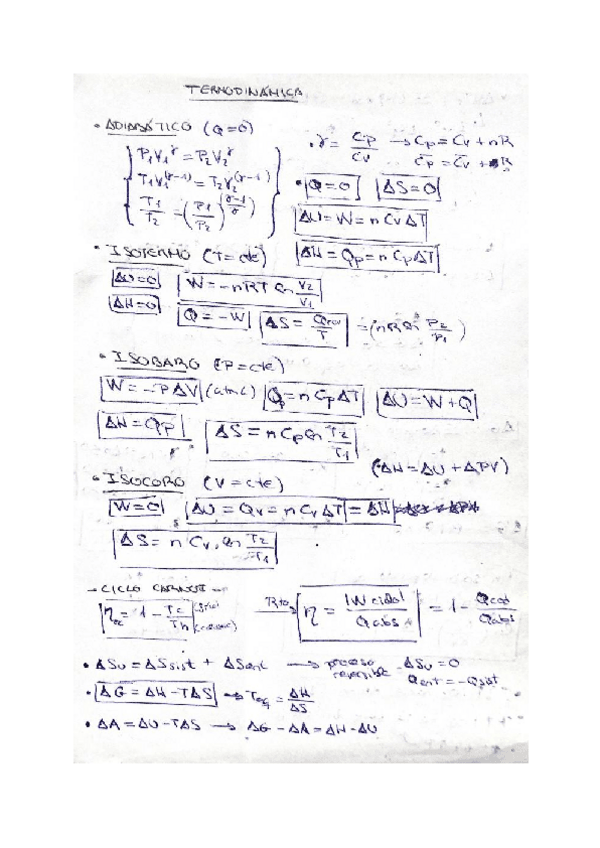 TERMODINÁMICA
• ADIABÁTICO (Q=0)
P₁V₁^γ = P₂V₂^γ
T₁V₁^(γ-1) = T₂V₂^(γ-1)
T₁/T₂ = (P₁/P₂)^(γ-1/γ)
• γ = Cp/Cv → Cp = Cv + nR
C̅p = C̅v + R
• Q=0 ΔS=0
ΔU = W = n Cv ΔT
ΔH = Qp = n Cp ΔT
• ISOTERMO (T=cte)
ΔU=0 W = -nRT ln V₂/V₁
ΔH=0 Q = -W ΔS = Qrev/T = (nR ln P₂/P₁)
• ISOBARO (P=cte)
W = -PΔV (atm L) Qp = n Cp ΔT ΔU = W+Q
ΔH = Qp ΔS = n Cp ln T₂/T₁
(ΔH = ΔU + ΔPV)
• ISOCORO (V=cte)
W=0 ΔU = Qv = n Cv ΔT = ΔH
ΔS = n Cv. ln T₂/T₁
- CICLO CARNOT -
= 1 - Tc/Th Rto η = |W ciclo|/Qabs = 1 - Qced/Qabs
• ΔSu = ΔSsist + ΔSent → proceso reversible ΔSu = 0
Qent = -Qsist
• ΔG = ΔH - TΔS → Teq = ΔH/ΔS
• ΔA = ΔU - TΔS → ΔG - ΔA = ΔH - ΔU